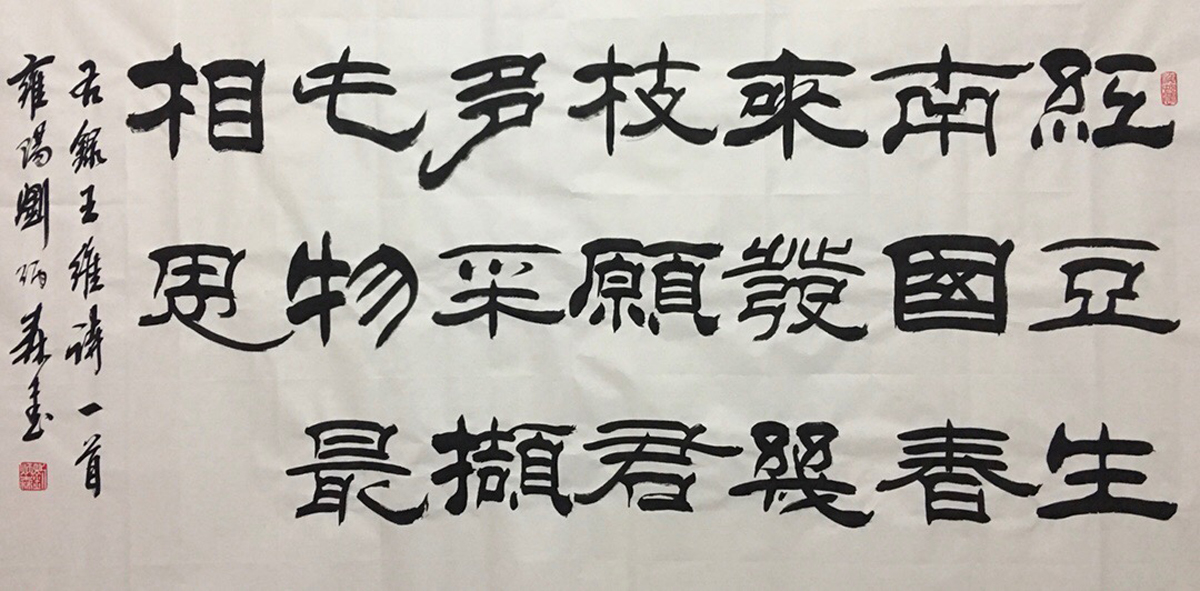 紅豆生
南國春
來發幾
枝願君
多采擷
此物最
相思
右錄王維詩一首
雍陽劉炳森書